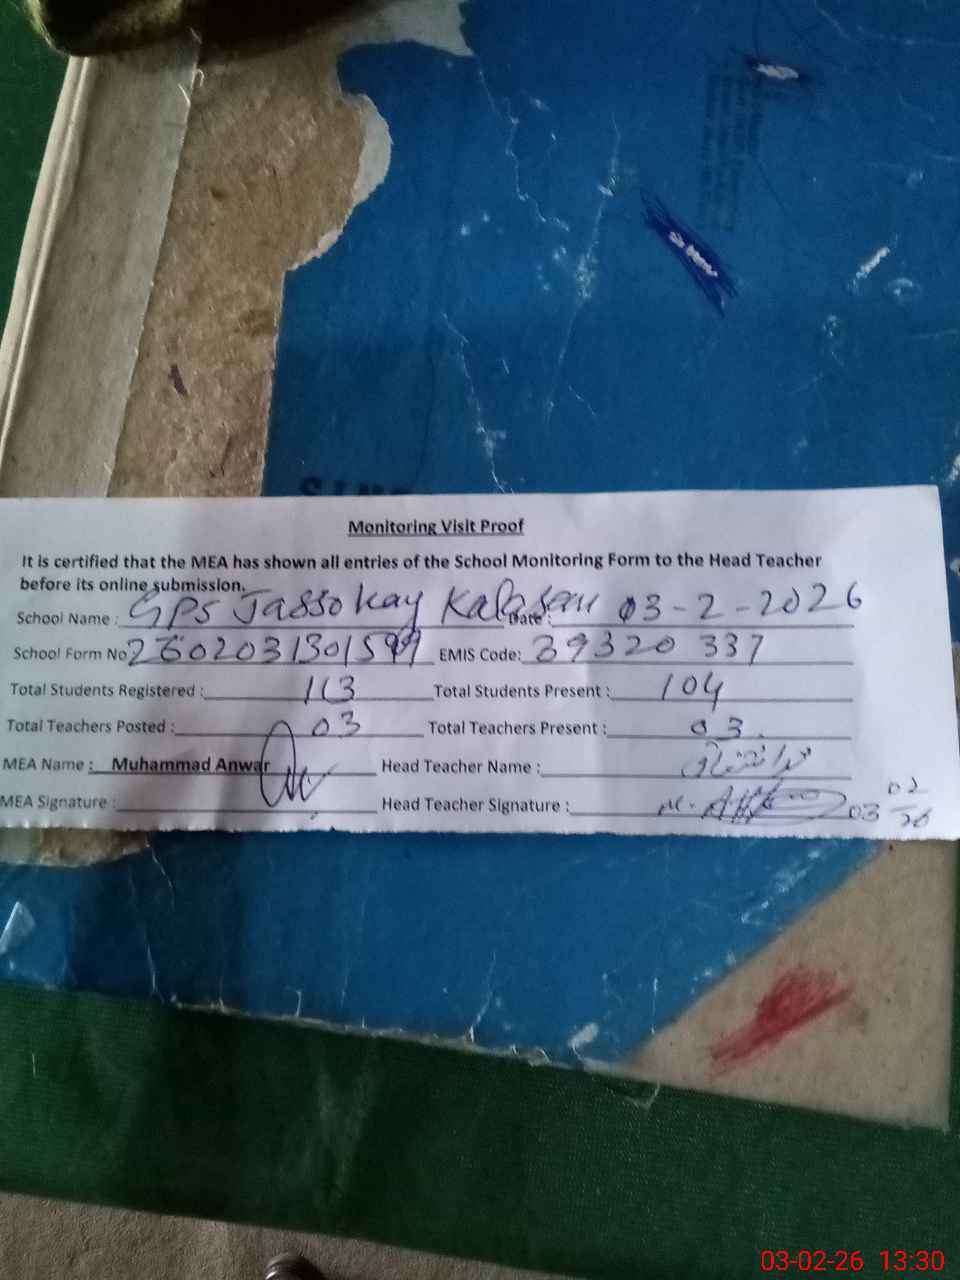 Monitoring Visit Proof
It is certified that the MEA has shown all entries of the School Monitoring Form to the Head Teacher
before its online submission.
School Name : GPS Jassokay Kalasan Date : 03-2-2026
School Form No 2602031301599 EMIS Code: 39320 337
Total Students Registered : 113 Total Students Present : 104
Total Teachers Posted : 03 Total Teachers Present : 03
MEA Name : Muhammad Anwar Head Teacher Name :
MEA Signature : Head Teacher Signature : 03 02/26
03-02-26 13:30